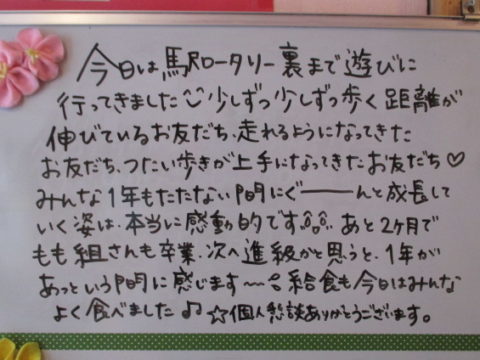 今日は馬尺ロータリー裏まで遊びに
行ってきました 少しずつ少しずつ歩く距離が
伸びているお友だち、走れるようになってきた
お友だち、つたい歩きが上手になってきたお友だち♡
みんな1年もたたない間にぐーーんと成長して
いく姿は、本当に感動的です。あと2ヶ月で
もも組さんも卒業、次へ進級かと思うと、1年が
あっという間に感じます〜 給食も今日はみんな
よく食べました♪ ☆個人懇談ありがとうございます。